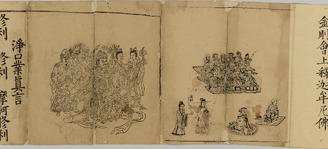 金剛會上釋迦牟尼佛
淨口業眞言
修利 修利 摩訶修利